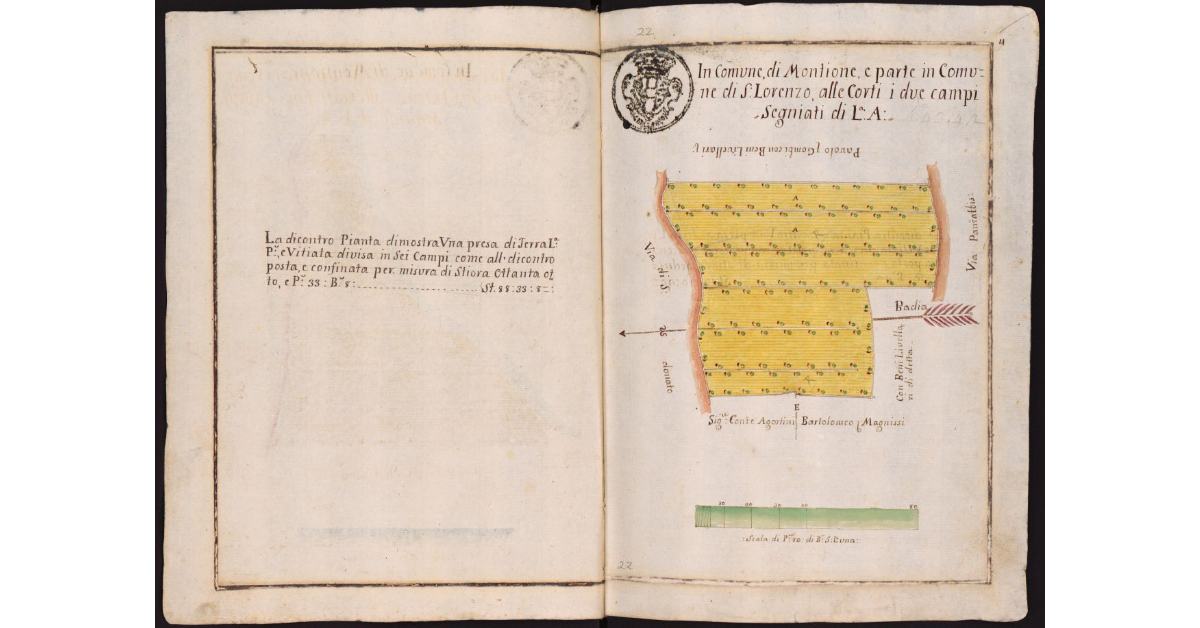 La dicontro Pianta dimostra Vna presa di Terra L:
P:, e Vitiata divisa in Sei Campi come all: dicontro
posta, e confinata per misura di Stiora Ottanta ot
to, e P: 33: B: 8: St. 88: 33: 8
22
4
In Comune, di Montione, e parte in Comu=
ne di S: Lorenzo, alle Corti i due campi
Segniati di L: A:
Pavolo Gombi con Beni Livellari
A
A
Via di S:
donato
Via Pantattis:
Badia
Con Beni Livella
ri di detta
E
Sig: Conte Agostini Bartolomeo Magnissi
Scala di P: 80: di B: 5: l'una:
22